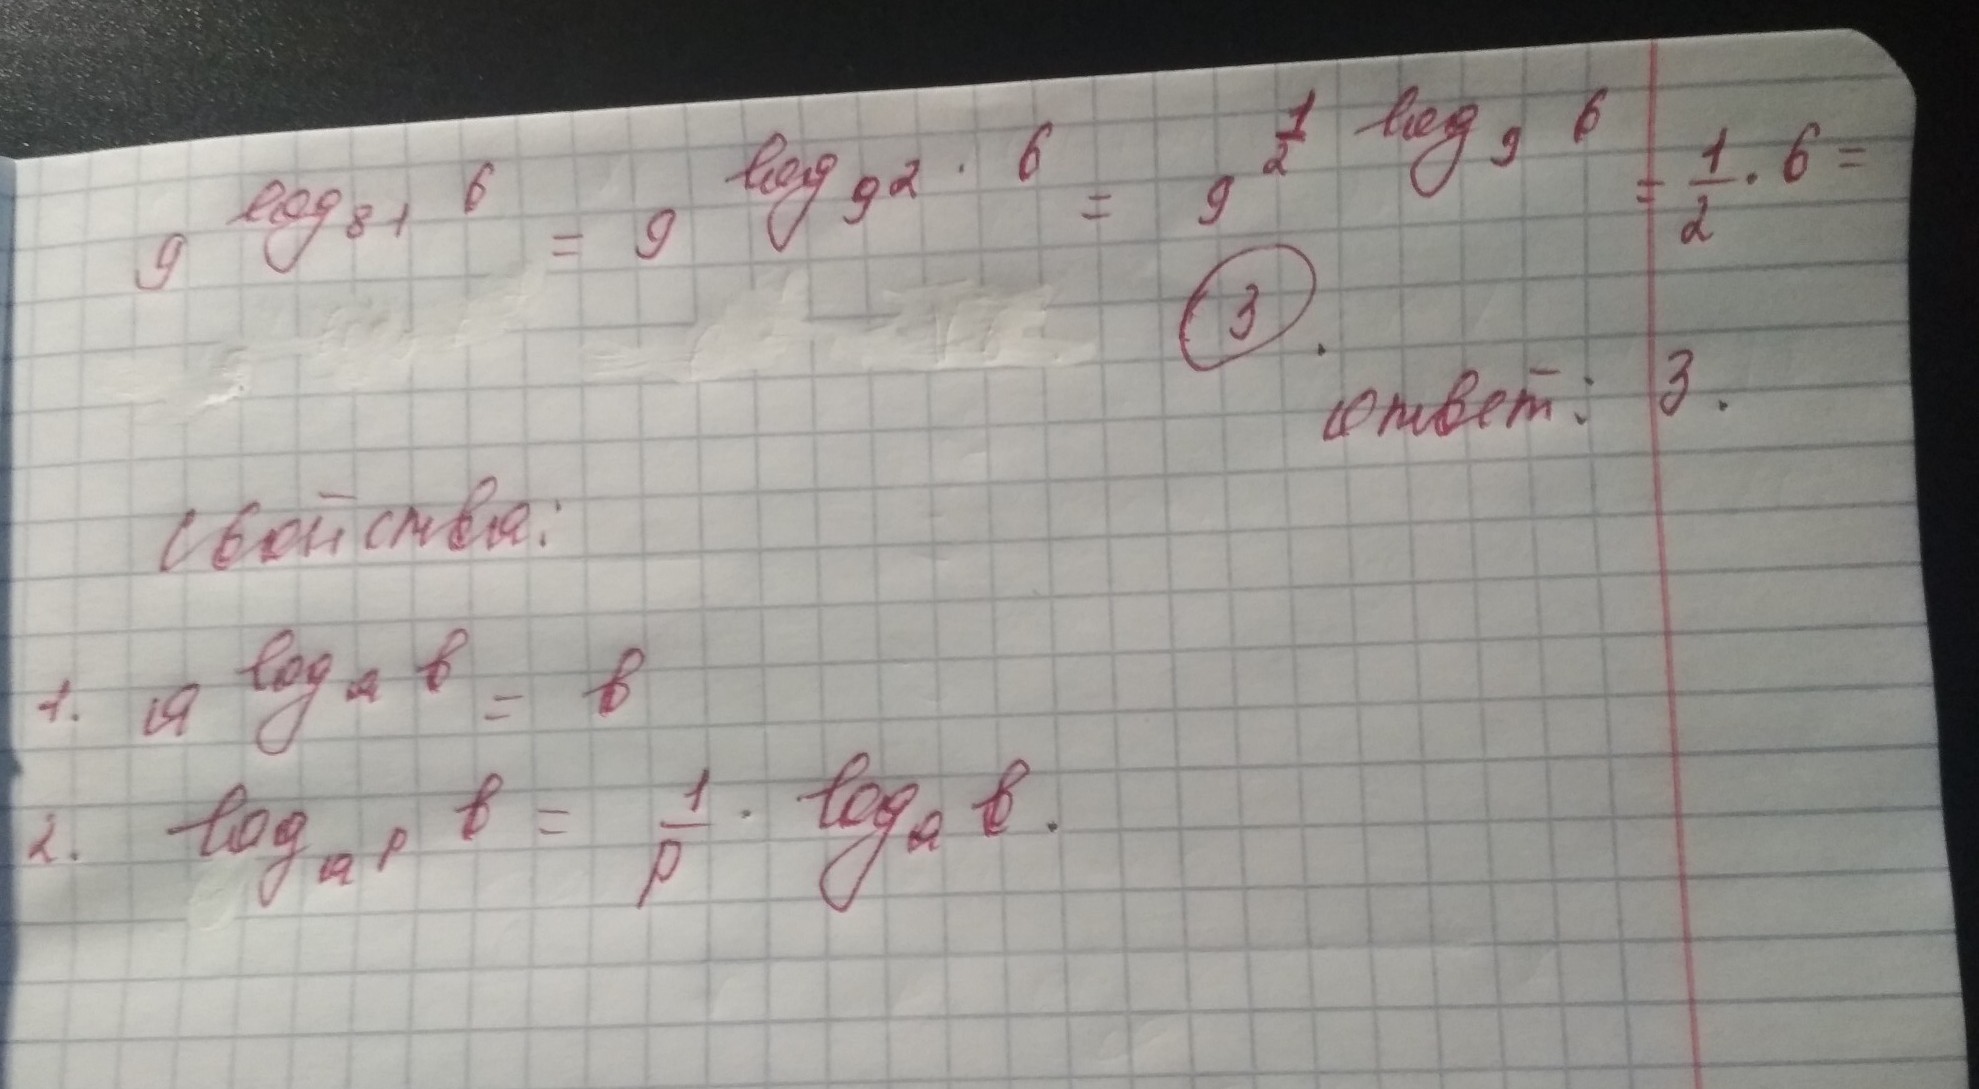 9^{log_{81} 6} = 9^{log_{9^2} · 6} = 9^{\frac{1}{2} log_9 6} = \frac{1}{2} · 6 =
3.
Ответ: 3.
Свойства:
1. a^{log_a b} = b
2. log_{a^p} b = \frac{1}{p} · log_a b.